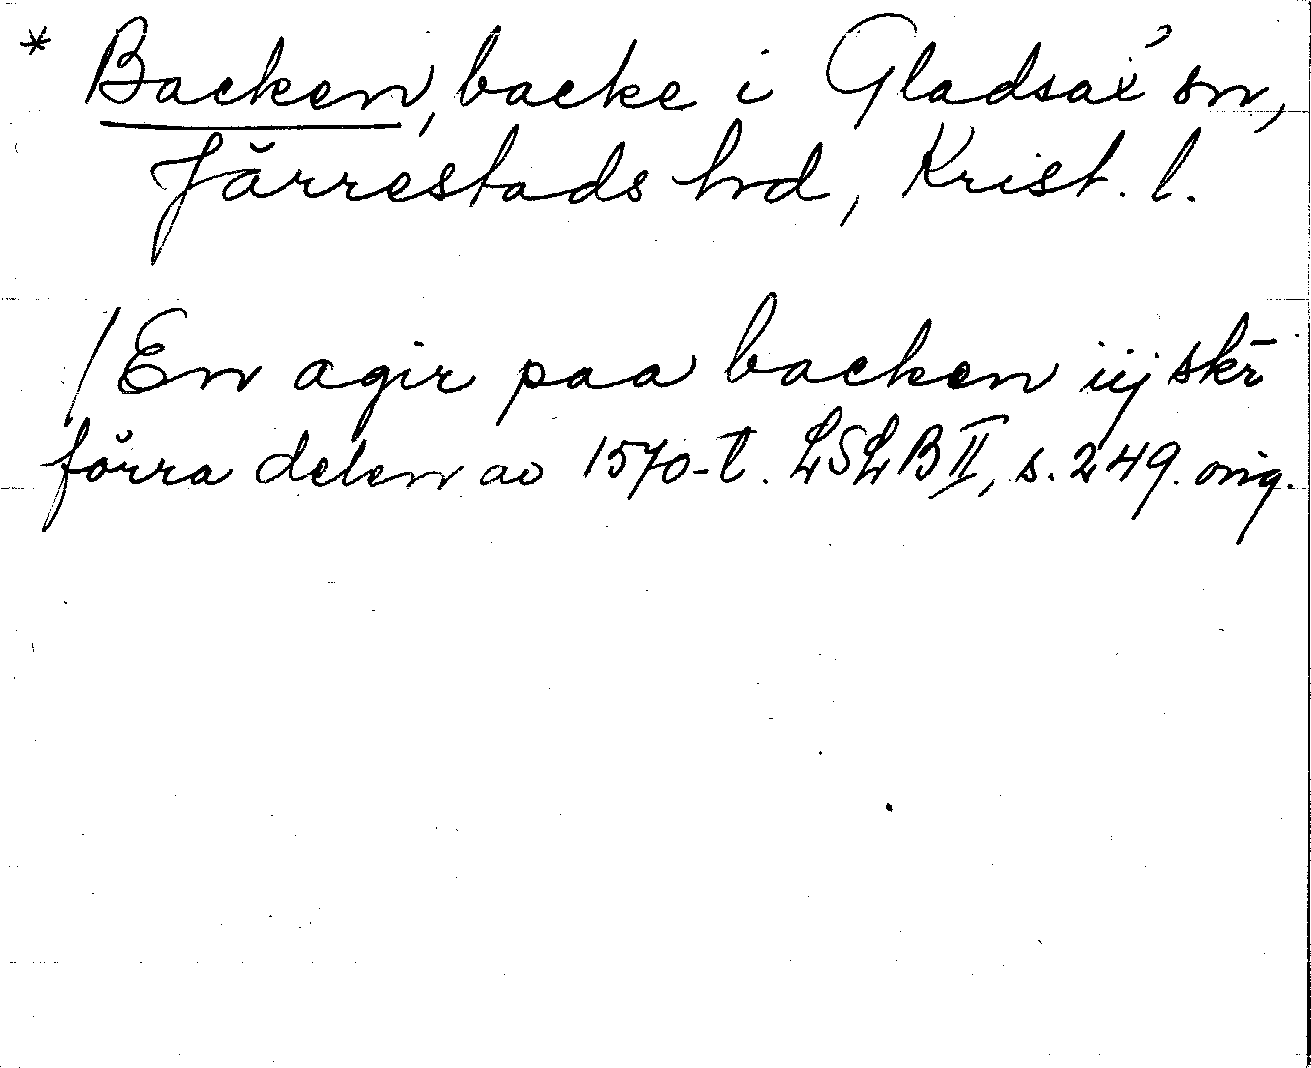 * Backen, backe i Gladsax' sn,
Järrestads hd, Krist. l.
/En agir paa backen iij skr̄
förra delen av 1570-t. LSLB II, s. 249. orig.